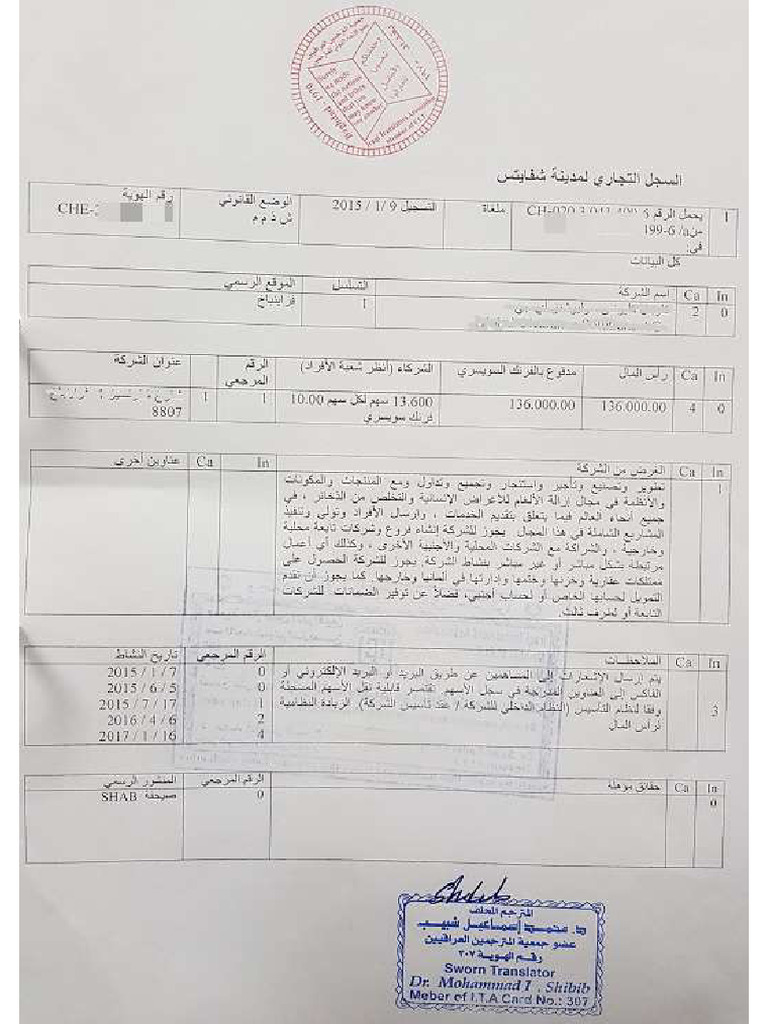 السجل التجاري لمدينة شفايتس
1
يحمل الرقم
من 6/a-199
في:
ملغاة
التسجيل 9 /1/ 2015
الوضع القانوني
ش ذ م م
رقم الهوية
CHE-
كل البيانات
In Ca اسم الشركة التسلسل الموقع الرسمي
0 2 1 فراينباخ
In Ca رأس المال مدفوع بالفرنك السويسري الشركاء (أنظر شعبة الأفراد) الرقم المرجعي عنوان الشركة
0 4 136.000.00 136.000.00 13.600 سهم لكل سهم 10.00 فرنك سويسري 1 1
8807
In Ca الغرض من الشركة In Ca عناوين أخرى
1
تطوير وتصنيع وتأجير واستئجار وتجميع وتداول ومع المنتجات والمكونات
والأنظمة في مجال إزالة الألغام للأغراض الإنسانية والتخلص من الذخائر ، في
جميع أنحاء العالم فيما يتعلق بتقديم الخدمات ، وارسال الأفراد وتولي وتنفيذ
المشاريع الشاملة في هذا المجال. يجوز للشركة إنشاء فروع وشركات تابعة محلية
وخارجية ، والشراكة مع الشركات المحلية والأجنبية الأخرى ، وكذلك أي أعمال
مرتبطة بشكل مباشر أو غير مباشر بنشاط الشركة. يجوز للشركة الحصول على
ممتلكات عقارية وإدارتها في ألمانيا وخارجها. كما يجوز أن تقدم
التمويل لحسابها الخاص أو لحساب أجنبي، فضلاً عن توفير الضمانات للشركات
التابعة أو لطرف ثالث.
In Ca الملاحظات الرقم المرجعي تاريخ النشاط
3
يتم إرسال الإشعارات إلى المساهمين عن طريق البريد أو البريد الإلكتروني أو
الفاكس إلى العناوين المدرجة في سجل الأسهم. تقتصر قابلية نقل الأسهم المسجلة
وفقا لنظام التأسيس (النظام الداخلي للشركة / عند تأسيس الشركة). الزيادة النظامية
لرأس المال
0 7 / 1 / 2015
0 5 / 6 / 2015
1 17 / 7 / 2015
2 6 / 4 / 2016
4 16 / 1 / 2017
In Ca حقائق مؤهلة الرقم المرجعي المنشور الرسمي
0 0 صحيفة SHAB
المترجم المحلف
د. محمد إسماعيل شبيب
عضو جمعية المترجمين العراقيين
رقم الهوية ٣٠٧
Sworn Translator
Dr. Mohammad I . Shibib
Meber of I.T.A Card No.: 307